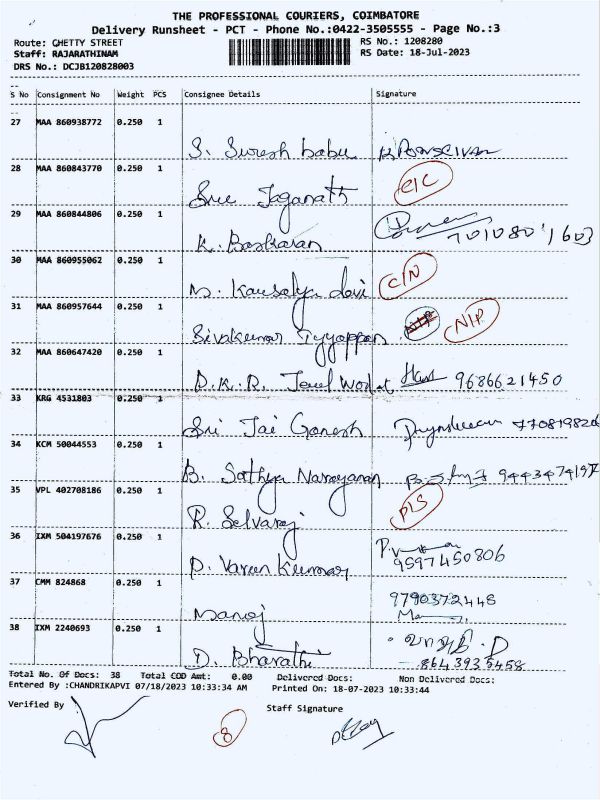 THE PROFESSIONAL COURIERS, COIMBATORE
Delivery Runsheet - PCT - Phone No.:0422-3505555 - Page No.:3
Route: CHETTY STREET RS No.: 1208280
Staff: RAJARATHINAM RS Date: 18-Jul-2023
DRS No.: DCJB120828003
S No Consignment No Weight PCS Consignee Details Signature
27 MAA 860938772 0.250 1
S. Suresh babu
28 MAA 860843770 0.250 1
Sree Jaganath
29 MAA 860844806 0.250 1
K. Baskaran 7010801603
30 MAA 860955062 0.250 1
M. Kausalya devi C/N
31 MAA 860957644 0.250 1
Sivakumar Iyyappan N/P
32 MAA 860647420 0.250 1
D.K.R. Jewel 9686621450
33 KRG 4531803 0.250 1
Sri Jai Ganesh
34 KCM 50044553 0.250 1
B. Sathya Narayanan
35 VPL 402708186 0.250 1
R. Selvaraj
36 IXM 504197676 0.250 1
P. Varun Kumar 9597450806
37 CMM 824868 0.250 1
Manoj 9790372448
38 IXM 2240693 0.250 1
D. Bharathi
Total No. Of Docs: 38 Total COD Amt: 0.00 Delivered Docs: Non Delivered Docs:
Entered By :CHANDRIKAPVI 07/18/2023 10:33:34 AM Printed On: 18-07-2023 10:33:44
Verified By Staff Signature
8